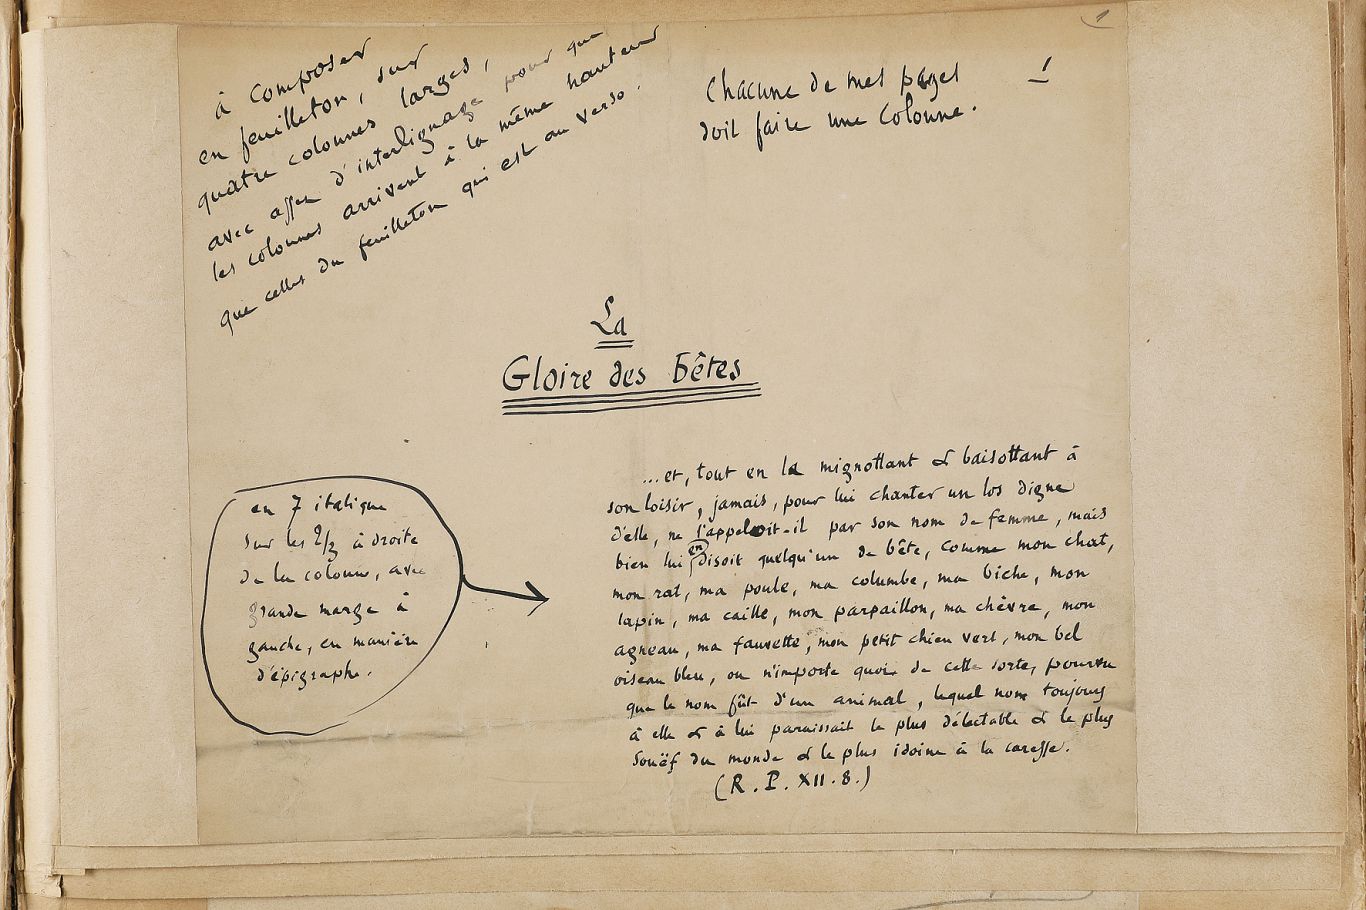 1
à composer
en feuilleton, sur
quatre colonnes larges,
avec assez d'interlignage pour que
les colonnes arrivent à la même hauteur
que celles du feuilleton qui est au verso.
Chacune de mes pages
doit faire une colonne.
1
La
Gloire des bêtes
en 7 italique
sur les 2/3 à droite
de la colonne, avec
grande marge à
gauche, en manière
d'épigraphe.
...et, tout en la mignottant & baisottant à
son loisir, jamais, pour lui chanter un los digne
d'elle, ne l'appeloit-il par son nom de femme, mais
bien lui en disoit quelqu'un de bête, comme mon chat,
mon rat, ma poule, ma columbe, ma biche, mon
lapin, ma caille, mon parpaillon, ma chèvre, mon
agneau, ma fauvette, mon petit chien vert, mon bel
oiseau bleu, ou n'importe quoi de cette sorte, pourvu
que le nom fût d'un animal, lequel nom toujours
à elle & à lui paraissait le plus délectable & le plus
souëf du monde & le plus idoine à la caresse.
(R. P. XII. 8.)